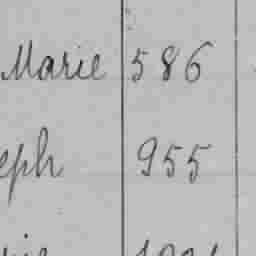 Marie 586
eph 955